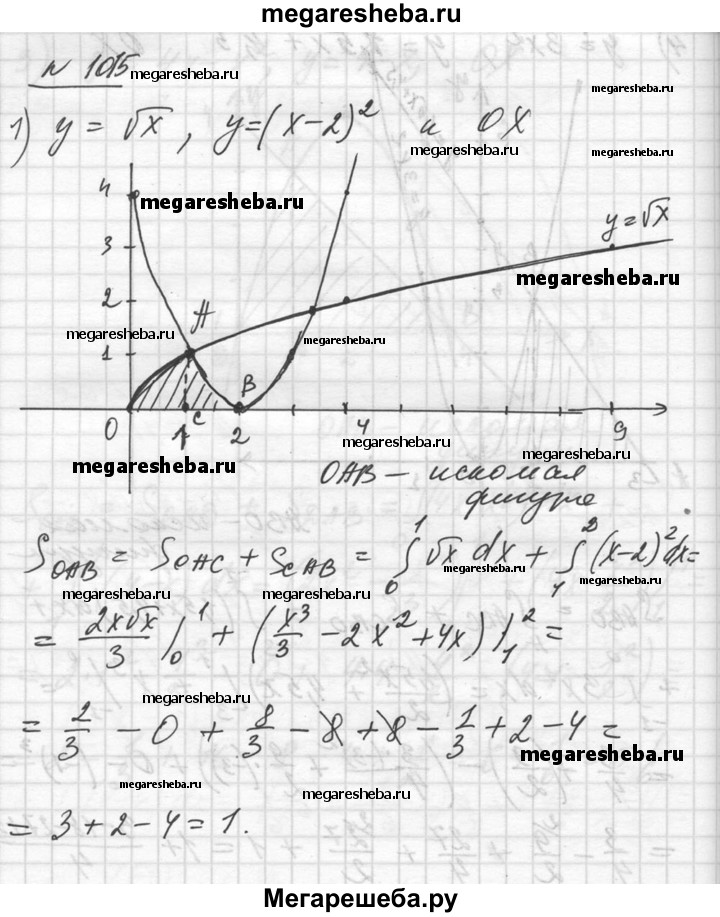 megaresheba.ru
N 1015 megaresheba.ru
megaresheba.ru
1) y = √x, y=(x-2)² и OX
megaresheba.ru
megaresheba.ru
4
megaresheba.ru
y=√x
3
megaresheba.ru
2
A
megaresheba.ru
megaresheba.ru
1
B
C
0 1 2 4 9
megaresheba.ru
megaresheba.ru
megaresheba.ru
OAB – искомая
фигура
S_OAB = S_OAC + S_CAB = ∫₀¹ √x dx + ∫₁² (x-2)² dx =
megaresheba.ru
megaresheba.ru
megaresheba.ru
megaresheba.ru
= 2x√x/3 |₀¹ + (x³/3 - 2x² + 4x) |₁² =
megaresheba.ru
= 2/3 - 0 + 8/3 - 8 + 8 - 1/3 + 2 - 4 =
megaresheba.ru
megaresheba.ru
megaresheba.ru
= 3 + 2 - 4 = 1.
Мегарешеба.ру